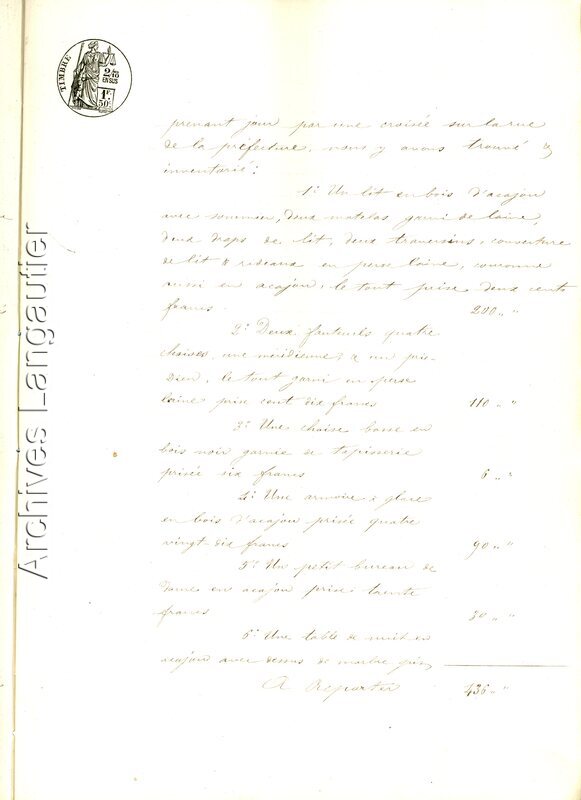 TIMBRE
2/10
EN SUS
1F.
50c.
prenant jour par une croisée sur la rue
de la préfecture, nous y avons trouvé &
inventorié:
1° Un lit en bois d'acajou
avec sommier, deux matelas garni de laine,
deux draps de lit, deux traversins, couverture
de lit & rideaux en perse laine, couronne
aussi en acajou, le tout prisé deux cents
francs. 200 „ "
2° Deux fauteuils quatre
chaises, une méridienne & un prie-
Dieu, le tout garni en perse
laine prisé cent dix francs 110 „ "
3° Une chaise basse en
bois noir garnie de tapisserie
prisée six francs 6 „ "
4° Une armoire à glace
en bois d'acajou prisée quatre
vingt-dix francs 90 „ "
5° Un petit bureau de
dame en acajou prisé trente
francs 30 „ "
6° Une table de nuit en
acajou avec dessus de marbre
A Reporter 436 „ "
Archives Langautier